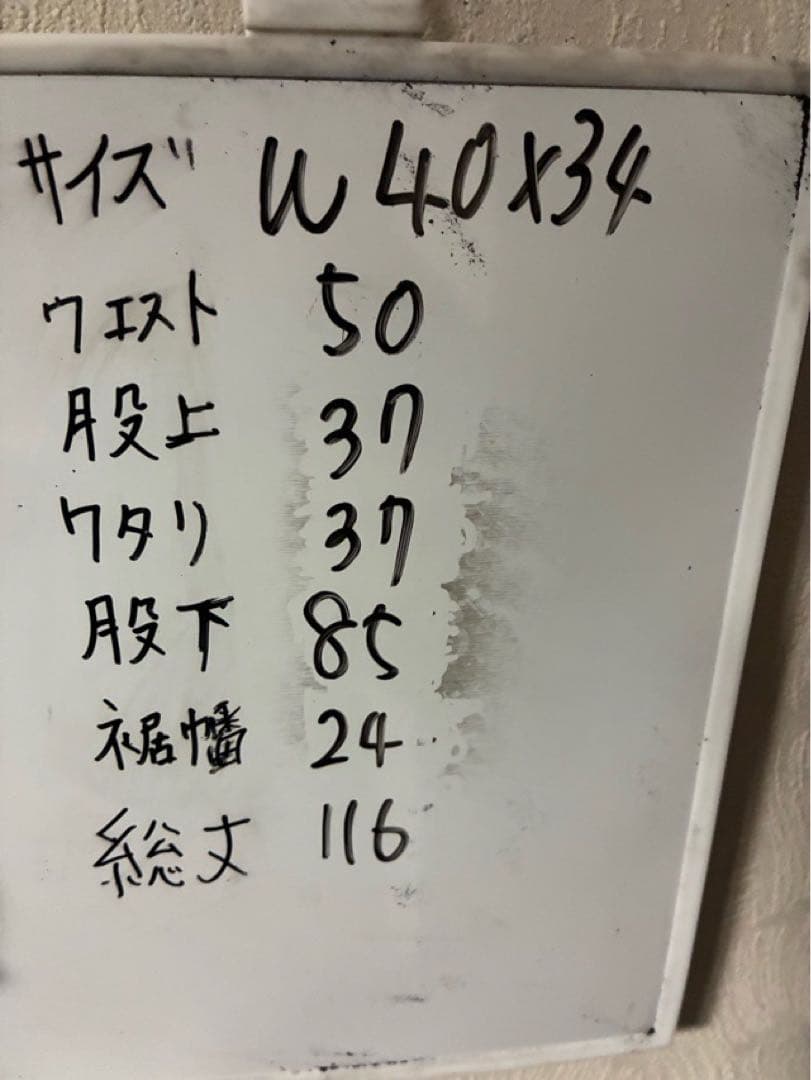 サイズ W40x34
ウエスト 50
股上 37
ワタリ 37
股下 85
裾幅 24
総丈 116